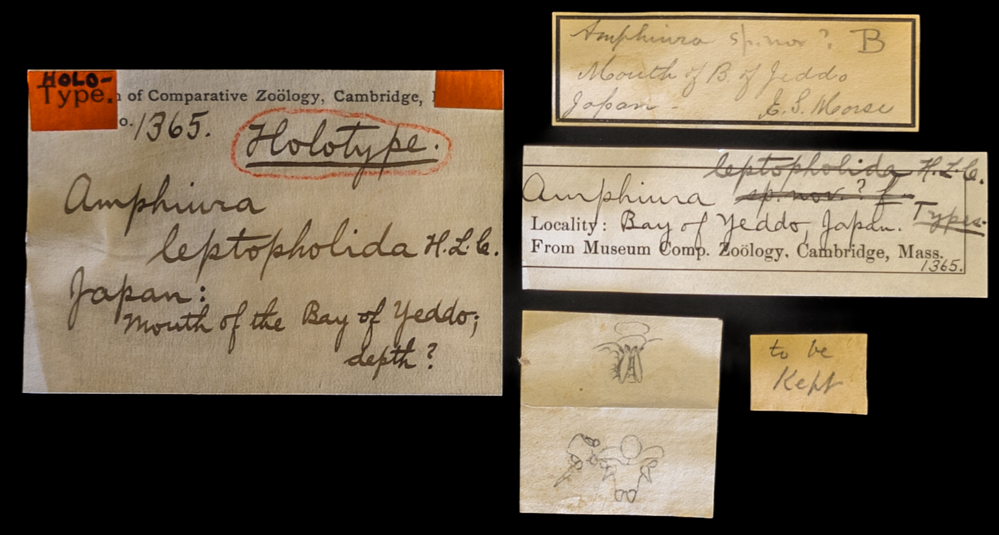 HOLO-
Type.
of Comparative Zoölogy, Cambridge,
o. 1365. Holotype.
Amphiura
leptopholida H.L.C.
Japan:
Mouth of the Bay of Yeddo;
depth?
Amphiura sp. nov? B
Mouth of B. of Jeddo
Japan - E.S. Morse
leptopholida H.L.C.
Amphiura sp. nov.?
Types.
Locality: Bay of Yeddo, Japan.
From Museum Comp. Zoölogy, Cambridge, Mass.
1365.
to be
Kept